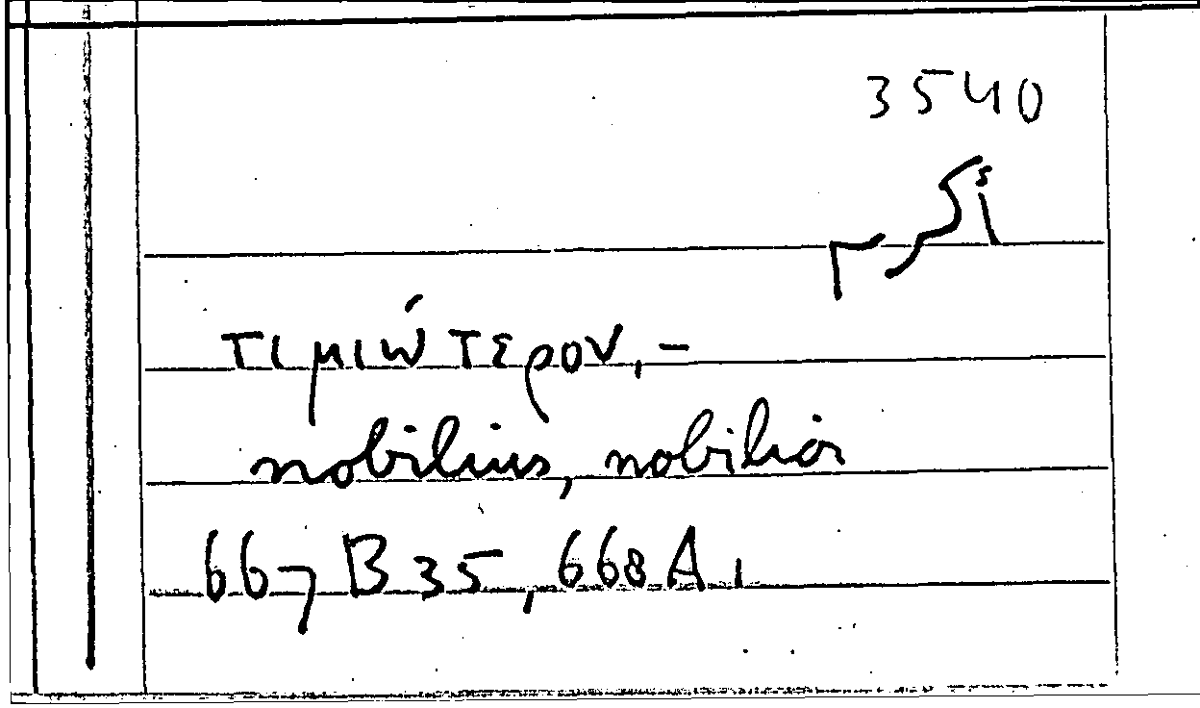 3540
أكرم
τιμιώτερον,-
nobilius, nobilior
667 B 35, 668 A 1